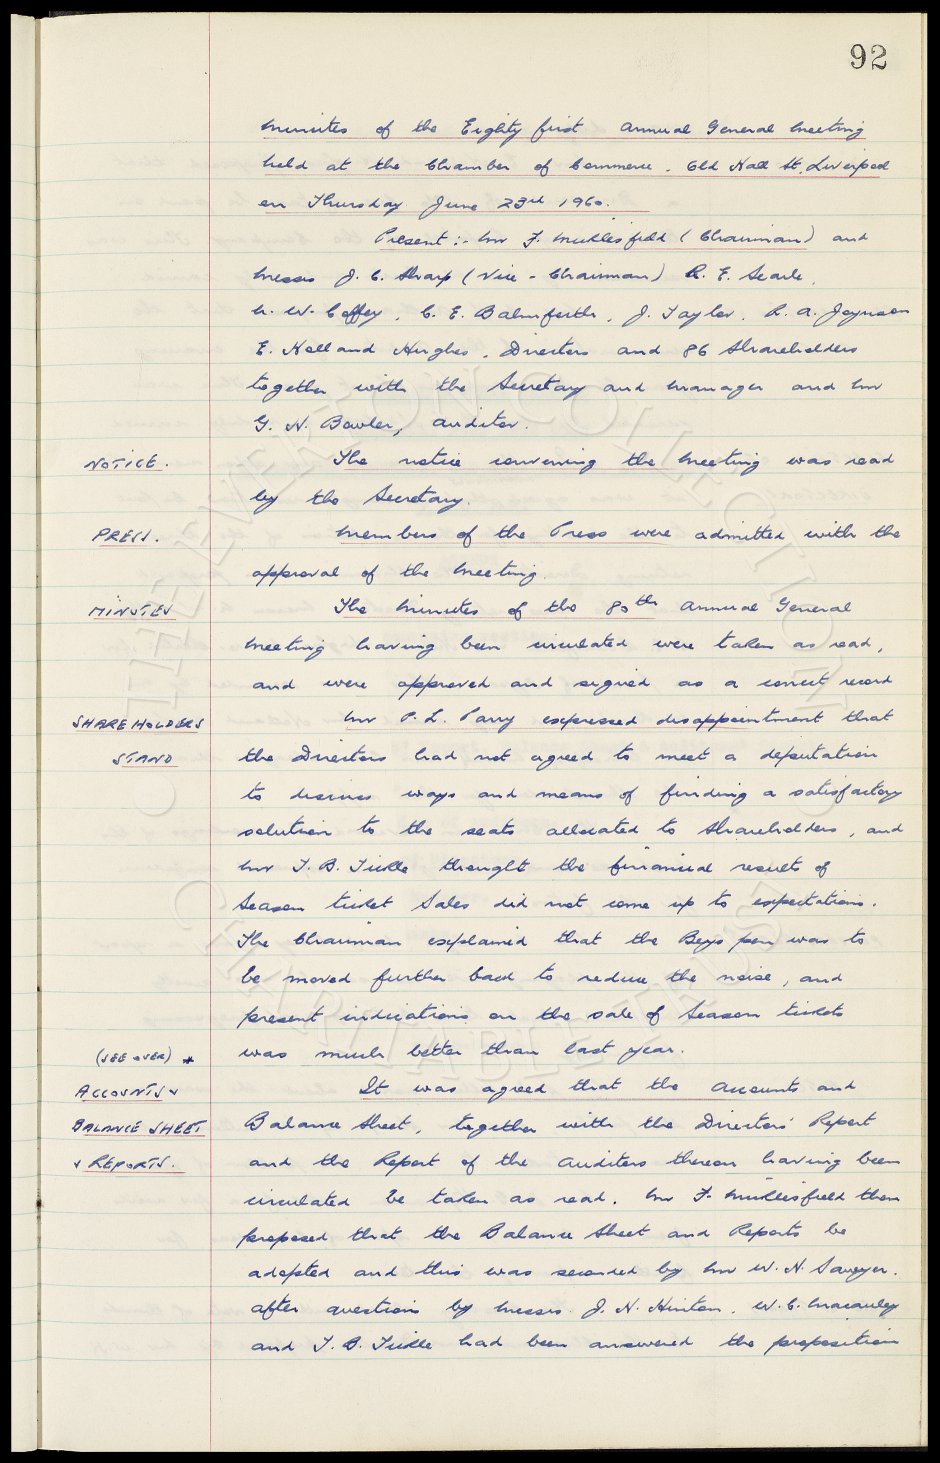 92
Minutes of the Eighty first Annual General Meeting
held at the Chamber of Commerce. Old Hall St. Liverpool
on Thursday June 23rd 1960.
Present :- Mr F. Micklesfield (Chairman) and
Messrs J. C. Sharp (Vice-Chairman) R. E. Searle,
N. W. Coffey, C. E. Balmforth, J. Taylor, R. A. Joynson
E. Holland Hughes, Directors and 86 Shareholders
together with the Secretary and Manager and Mr
G. N. Bowler, Auditor.
NOTICE. The notice convening the Meeting was read
by the Secretary.
PRESS. Members of the Press were admitted with the
approval of the Meeting.
MINUTES The Minutes of the 80th Annual General
Meeting having been circulated were taken as read,
and were approved and signed as a correct record
SHAREHOLDERS Mr P. L. Parry expressed disappointment that
STAND the Directors had not agreed to meet a deputation
to discuss ways and means of finding a satisfactory
solution to the seats allocated to Shareholders, and
Mr T. B. Tickle thought the financial results of
Season ticket Sales did not come up to expectations.
The Chairman explained that the Boys pen was to
be moved further back to reduce the noise, and
present indications on the sale of Season tickets
(SEE OVER) * was much better than last year.
ACCOUNTS & It was agreed that the Accounts and
BALANCE SHEET Balance Sheet, together with the Directors' Report
& REPORTS. and the Report of the Auditors thereon having been
circulated be taken as read. Mr F. Micklesfield then
proposed that the Balance Sheet and Reports be
adopted and this was seconded by Mr W. N. Sawyer.
After questions by Messrs. J. N. Hinton, W. C. Macauley
and T. B. Tickle had been answered the proposition
THE EVERTON COLLECTION
CHARITABLE TRUST